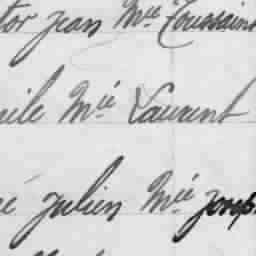 tor jean Mie Toussaint
ile Mié Laurent
é julien Mié josep